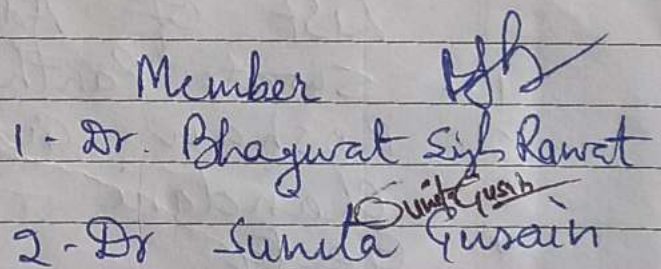 Member
1 - Dr. Bhagwat Singh Rawat
Sunita Gusain
2 - Dr Sunita Gusain